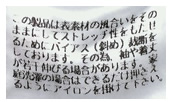 この製品は表素材の風合いをその
ままにしてストレッチ性をもたせ
るためにバイアス(斜め)裁断を
しております。その為、袖や着丈
が若干伸びる場合があります。
洗濯の場合はできるだけ伸び
るようにアイロンを掛けて下さい。